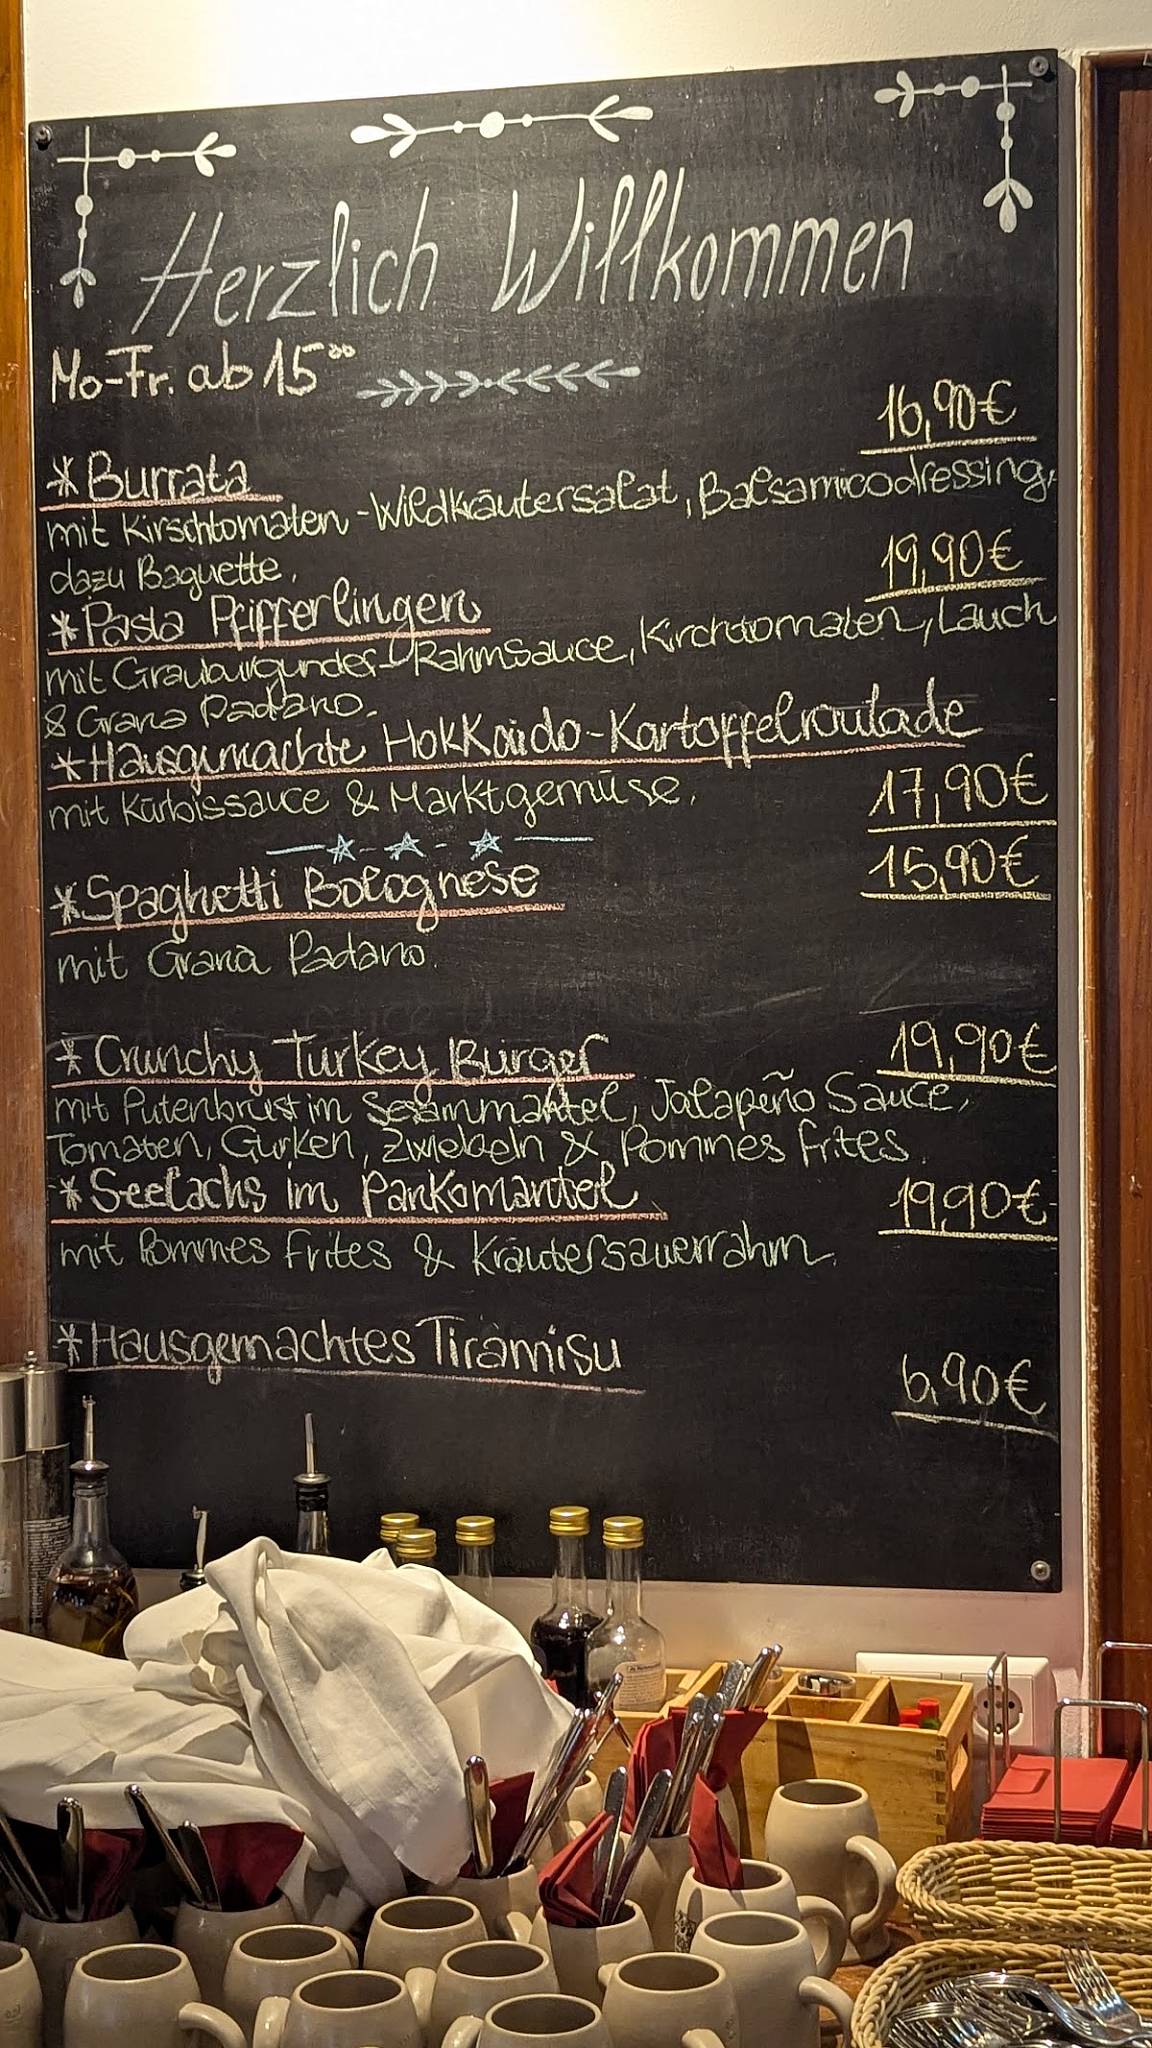 Herzlich Willkommen
Mo-Fr. ab 15⁰⁰
16,90€
*Burrata
mit Kirschtomaten-Wildkräutersalat, Balsamicodressing,
dazu Baguette.
19,90€
*Pasta Pfifferlingen
mit Grauburgunder-Rahmsauce, Kirchtomaten, Lauch
& Grana Padano.
*Hausgemachte Hokkaido-Kartoffelroulade
mit Kürbissauce & Marktgemüse. 17,90€
*Spaghetti Bolognese 15,90€
mit Grana Padano.
*Crunchy Turkey Burger 19,90€
mit Putenbrust im Sesammantel, Jalapeño Sauce,
Tomaten, Gurken, Zwiebeln & Pommes frites.
*Seelachs im Pankomantel 19,90€
mit Pommes frites & Kräutersauerrahm.
*Hausgemachtes Tiramisu 6,90€